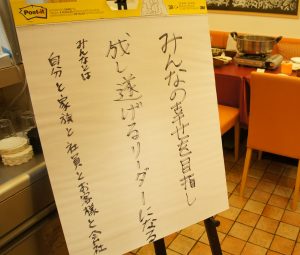 Post-it
みんなの幸せを目指し
成し遂げるリーダーになる
みんなとは
自分と家族と社員とお客様と会社